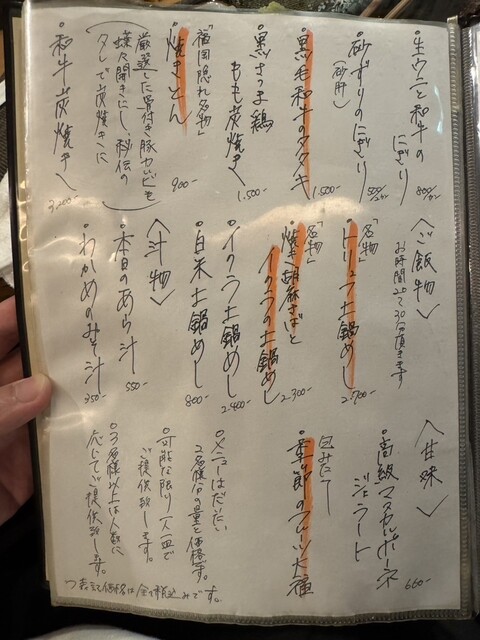 ・生ウニと和牛の
にぎり 800/2ヶ
・砂ずりのにぎり
(砂肝) 500/2ヶ
・黒毛和牛のタタキ 1,500-
・黒さつま鶏
もも炭焼き 1,500-
「福岡隠れ名物」
・焼きとん 900-
厳選した骨付き豚カルビを
蝶々開きにし、秘伝の
タレで炭焼きに
・和牛炭焼き 3,200-
〈ご飯物〉
お時間20〜30分頂きます
「名物」
・トリュフ土鍋めし 2,700-
「名物」
・焼き胡麻さばと
イクラの土鍋めし 2,300-
・イクラ土鍋めし 2,400-
・白米土鍋めし 800-
〈汁物〉
・本日のあら汁 550-
・わかめのみそ汁 350-
〈甘味〉
・高級マスカルポーネ
ジェラート 660-
包みたて
・季節のフルーツ大福
・メニューはだいたい
2名様分の量と価格です。
・可能な限り一人一皿で
ご提供致します。
・3名様以上は人数に
応じてご提供致します。
表記価格は全て税込みです。